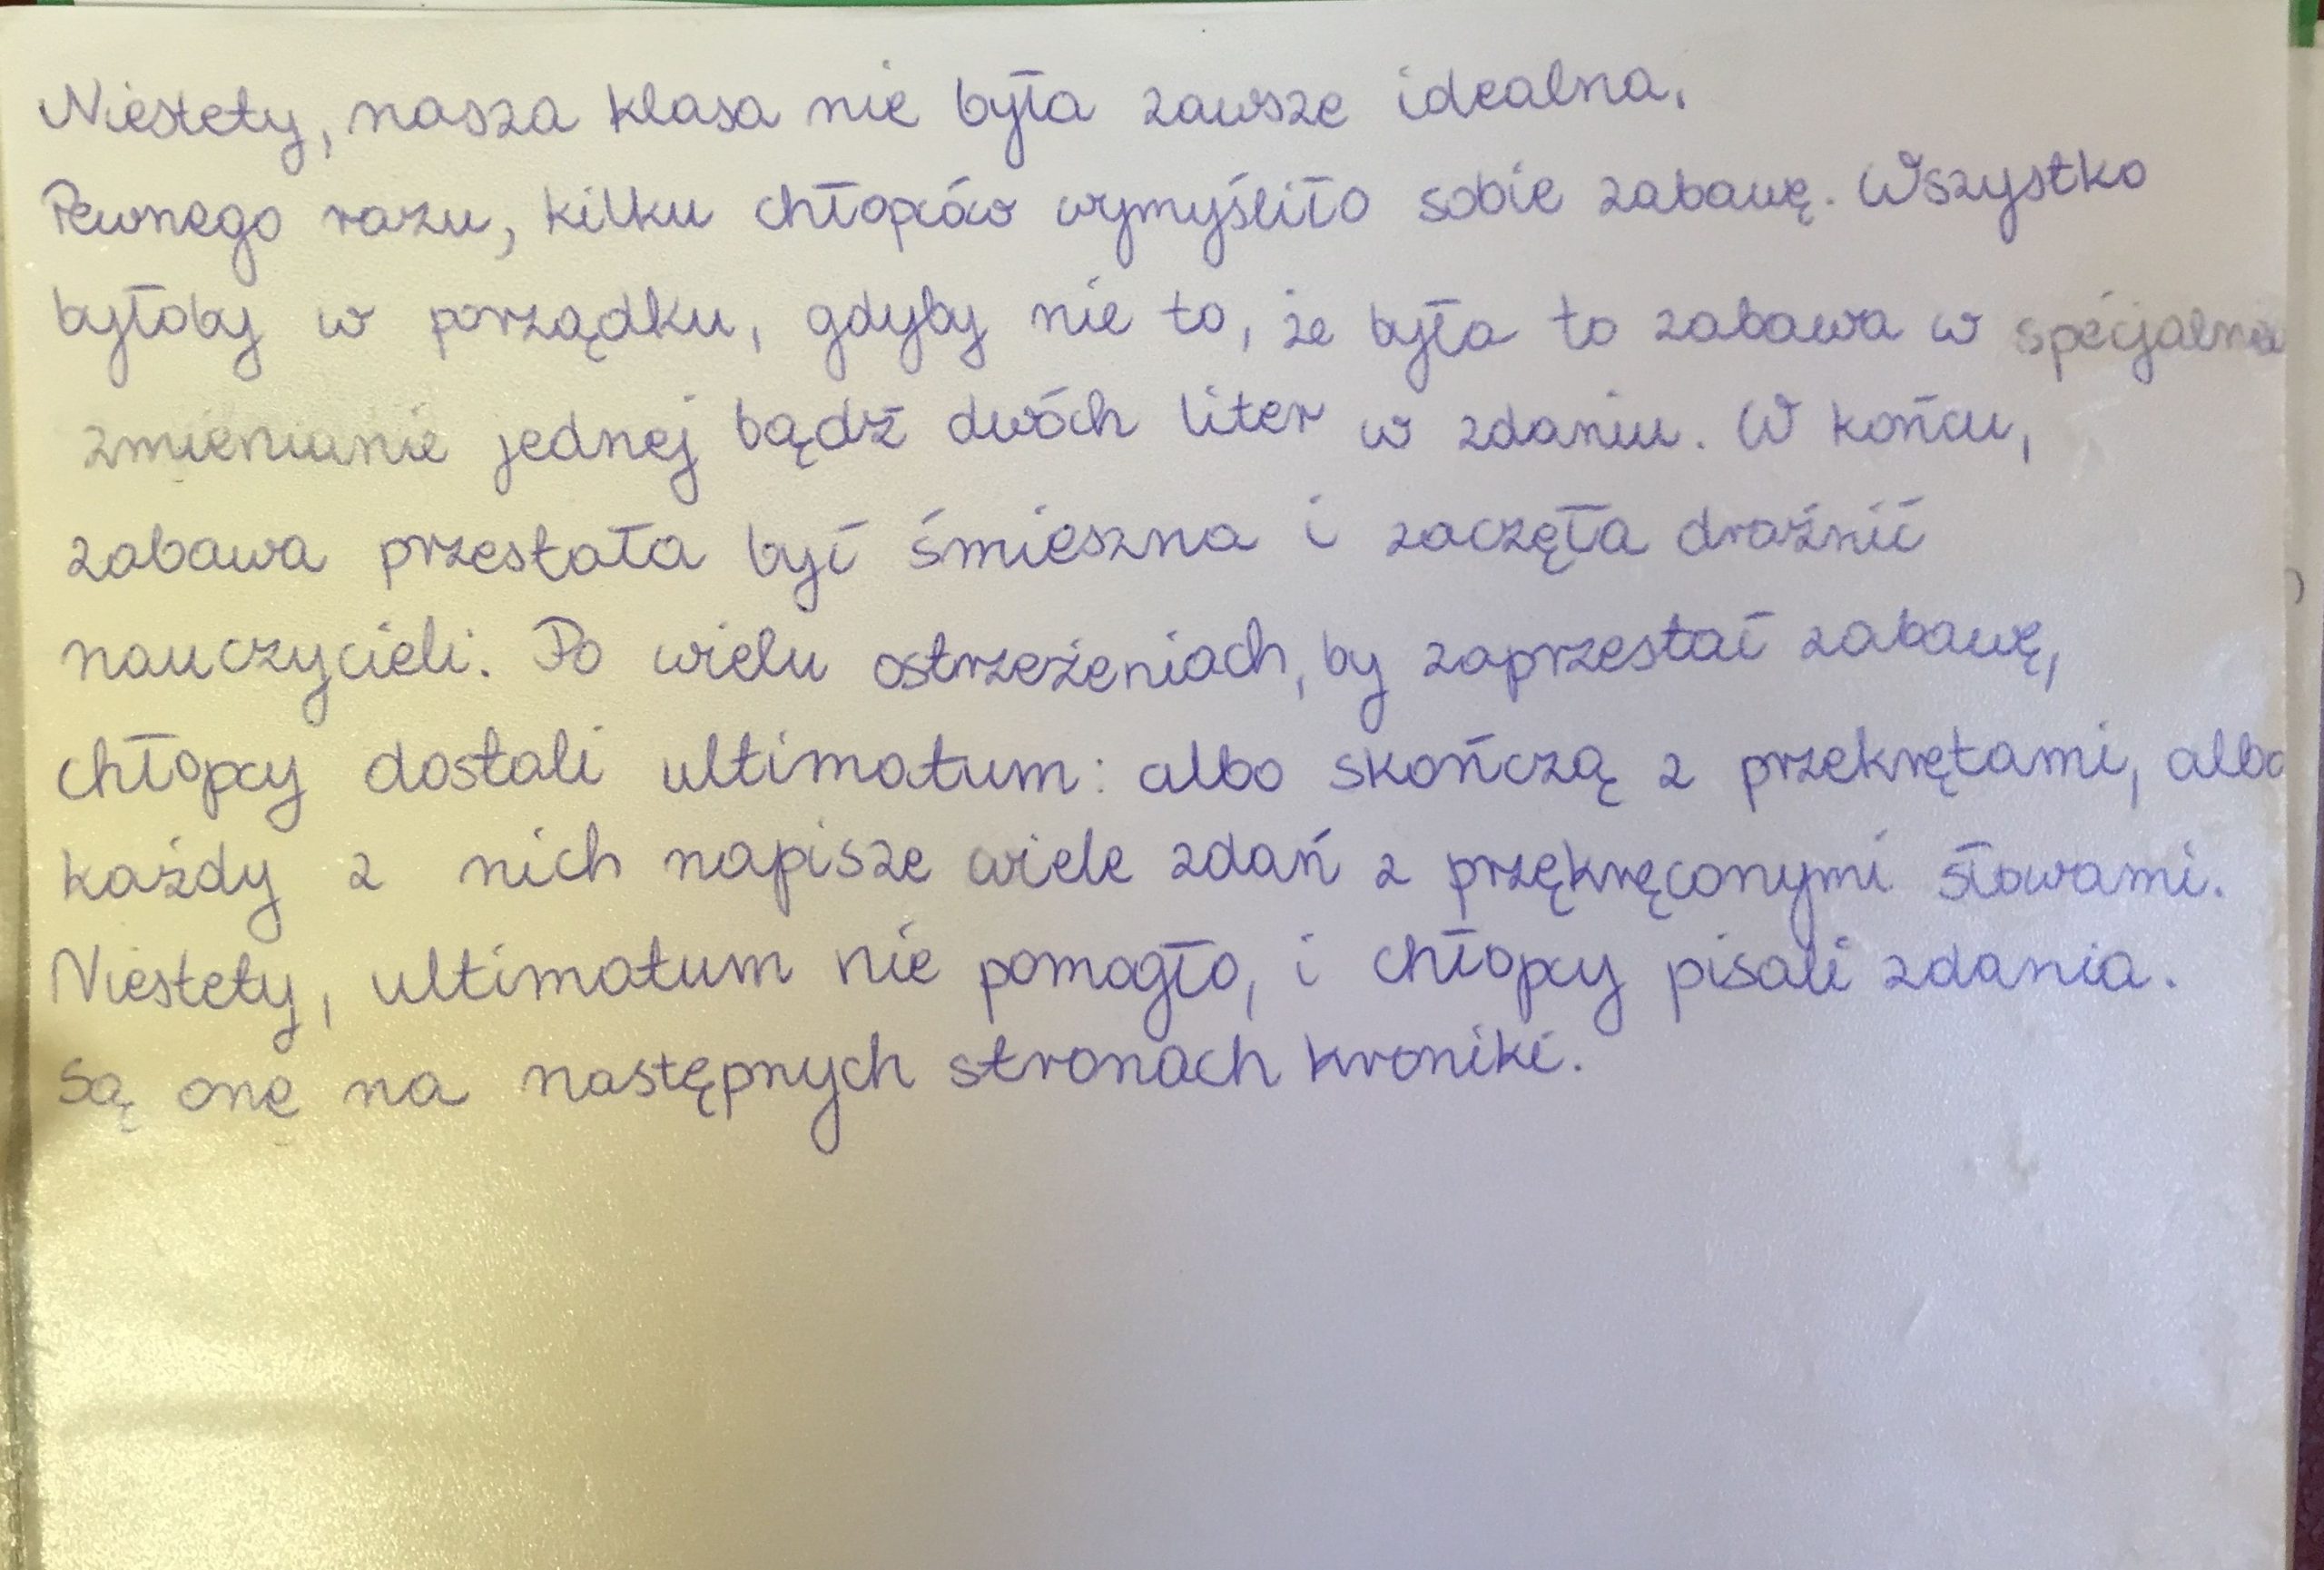 Niestety, nasza klasa nie była zawsze idealna.
Pewnego razu, kilku chłopców wymyśliło sobie zabawę. Wszystko
byłoby w porządku, gdyby nie to, że była to zabawa w specjalne
zmienianie jednej bądź dwóch liter w zdaniu. W końcu,
zabawa przestała być śmieszna i zaczęła drażnić
nauczycieli. Po wielu ostrzeżeniach, by zaprzestać zabawę,
chłopcy dostali ultimatum: albo skończą z przekrętami, albo
każdy z nich napisze wiele zdań z przękręconymi słowami.
Niestety, ultimatum nie pomogło, i chłopcy pisali zdania.
Są one na następnych stronach kroniki.